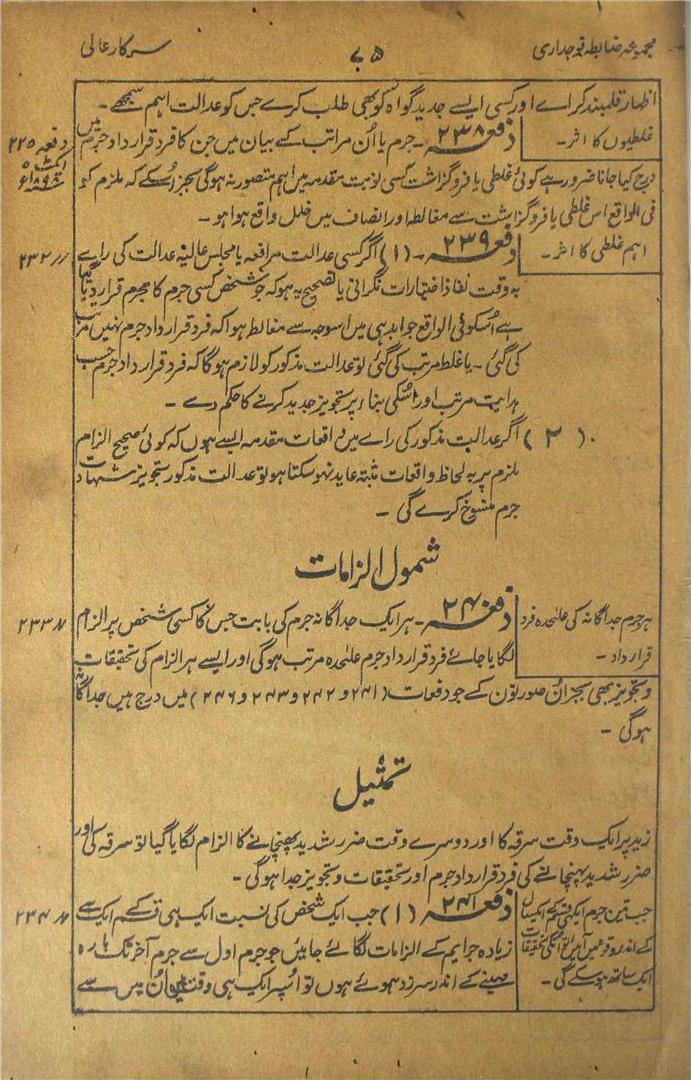 مجموعہ ضابطہ فوجداری
۷۵
سرکار عالی
اظہار قلمبند کرائے اور کسی ایسے جدید گواہ کو بھی طلب کرے جس کو عدالت اہم سمجھے ۔
غلطیوں کا اثر ۔
دفعہ ۲۳۸ ۔ جرم یا اُن مراتب کے بیان میں جن کا فرد قرارداد جرم میں
دفعہ ۲۲۵
ایکٹ ۵
۱۸۹۸ء
درج کیا جانا ضرور ہے کوئی غلطی یا فروگزاشت کسی نوبت مقدمہ میں اہم متصور نہ ہوگی بجز اسکے کہ ملزم کو
فی الواقع اس غلطی یا فروگزاشت سے مغالطہ اور انصاف میں خلل واقع ہوا ہو ۔
اہم غلطی کا اثر ۔
دفعہ ۲۳۹ ۔ (۱) اگر کسی عدالت مرافعہ یا مجلس عالیہ عدالت کی رائے
〃 ۲۳۲
بہ وقت نفاذ اختیارات نگرانی یا تصحیح یہ ہو کہ جو شخص کسی جرم کا مجرم قرار دیا گیا
ہے اُسکو فی الواقع جوابدہی میں اسوجہ سے مغالطہ ہوا کہ فرد قرارداد جرم نہیں مرتب
کی گئی ۔ یا غلط مرتب کی گئی تو عدالت مذکور کو لازم ہوگا کہ فرد قرارداد جرم حسب
ہدایت مرتب اور اُسکی بناء پر تجویز جدید کرنے کا حکم دے ۔
(۲) اگر عدالت مذکور کی رائے میں واقعات مقدمہ ایسے ہوں کہ کوئی صحیح الزام
ملزم پر بہ لحاظ واقعات مثبتہ عاید نہو سکتا ہو تو عدالت مذکور تجویز
جرم منسوخ کرے گی ۔
شمول الزامات
ہر جرم جداگانہ کی علٰحدہ فرد
قرارداد ۔
دفعہ ۲۴۰ ۔ ہر ایک جداگانہ جرم کی بابت جس کا کسی شخص پر الزام
〃 ۲۳۳
لگایا جائے فرد قرارداد جرم علٰحدہ مرتب ہوگی اور ایسے ہر الزام کی تحقیقات
و تجویز بھی بجز اُن صورتوں کے جو دفعات (۲۴۱ و ۲۴۲ و ۲۴۳ و ۲۴۶) میں درج ہیں جداگانہ
ہوگی ۔
تمثیل
زید پر ایک وقت سرقہ کا اور دوسرے وقت ضرر شدید پہنچانے کا الزام لگایا گیا تو سرقہ کی اور
ضرر شدید پہنچانے کی فرد قرارداد جرم اور تحقیقات و تجویز جدا ہوگی ۔
جب تین جرم ایک ہی قسم کے ایک سال
کے اندر وقوع میں آئیں تو انکی تحقیقات
ایک ساتھ ہو سکے گی ۔
دفعہ ۲۴۱ (۱) جب ایک شخص کی نسبت ایک ہی قسم کے ایک سے
〃 ۲۳۴
زیادہ جرایم کے الزامات لگائے جائیں جو جرم اول سے جرم آخر تک بارہ
مہینے کے اندر سرزد ہوئے ہوں تو اُسپر ایک ہی وقت میں اُن میں سے